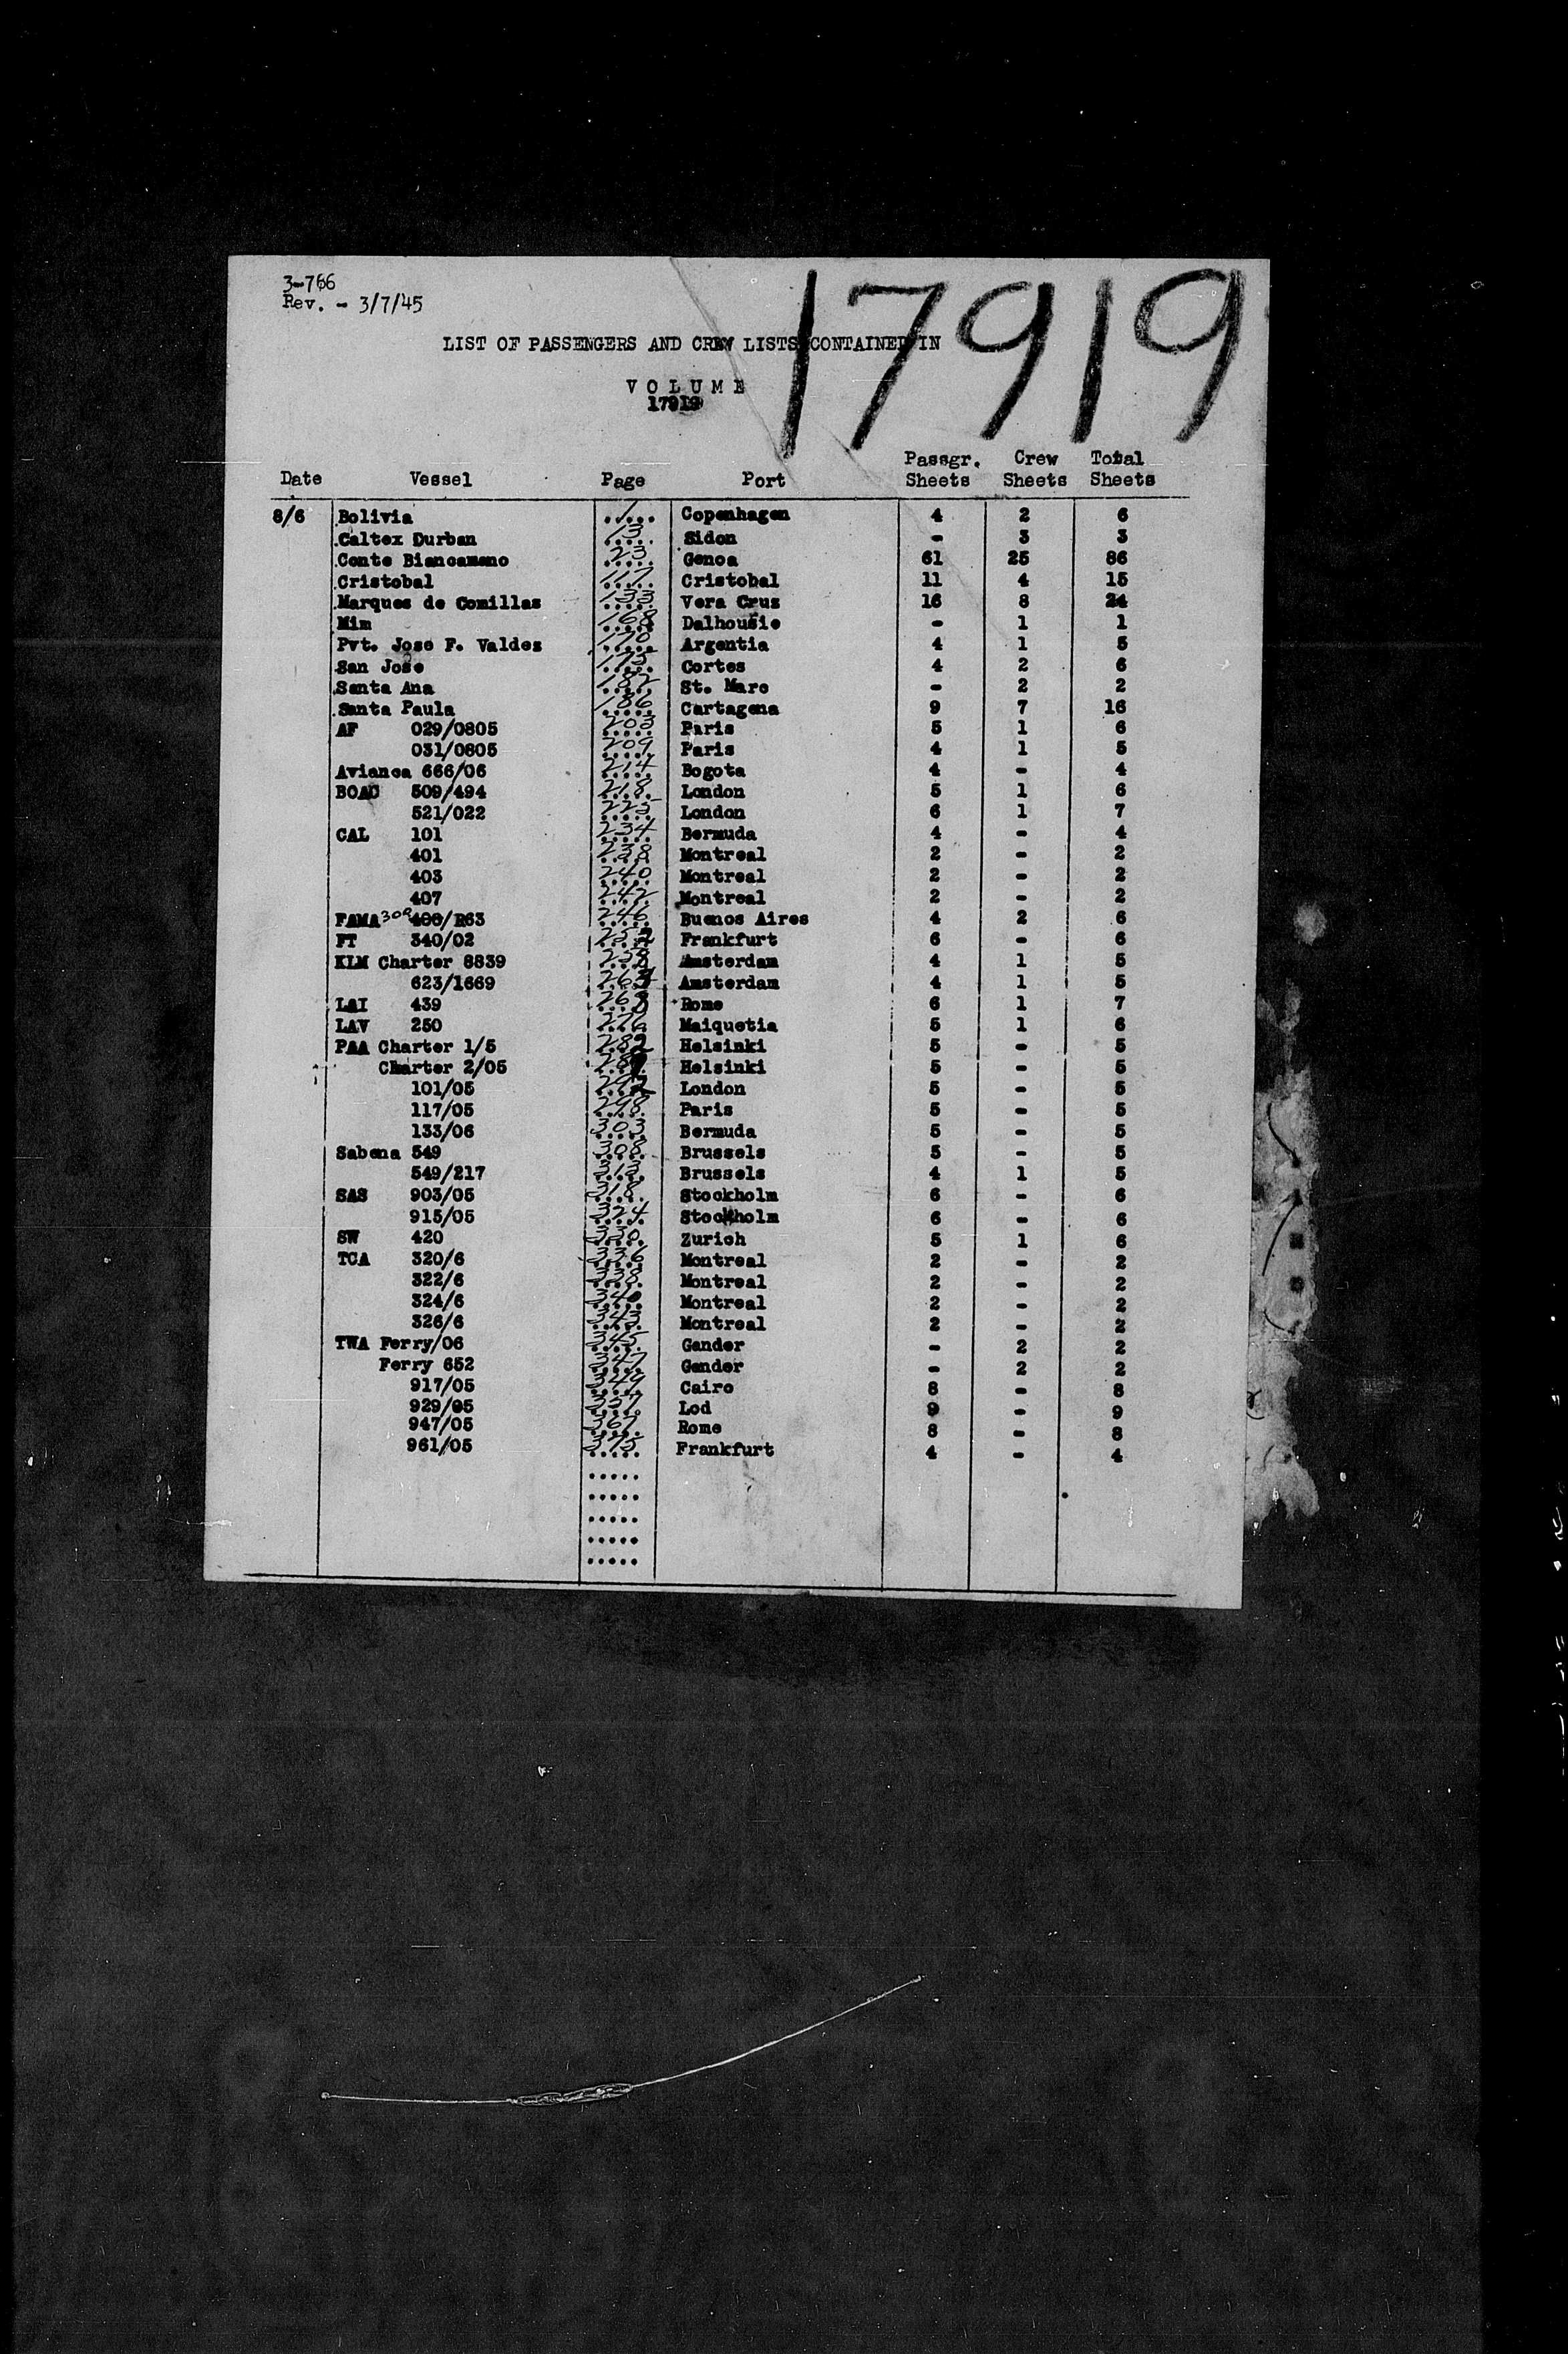 3-766
Rev. - 3/7/45
17919
LIST OF PASSENGERS AND CREW LISTS CONTAINED IN
VOLUME
17919
Date Vessel Page Port Passgr. Sheets Crew Sheets Total Sheets
8/6 Bolivia 1 Copenhagen 4 2 6
Caltex Durban 13 Sidon - 3 3
Conte Biancamano 23 Genoa 61 25 86
Cristobal 117 Cristobal 11 4 15
Marques de Comillas 133 Vera Cruz 16 8 24
Mim 168 Dalhousie - 1 1
Pvt. Jose F. Valdez 170 Argentia 4 1 5
San Jose 175 Cortes 4 2 6
Santa Ana 182 St. Marc - 2 2
Santa Paula 186 Cartagena 9 7 16
AF 029/0805 203 Paris 5 1 6
031/0805 209 Paris 4 1 5
Avianca 666/06 214 Bogota 4 - 4
BOAC 509/494 218 London 5 1 6
521/022 225 London 6 1 7
CAL 101 234 Bermuda 4 - 4
401 238 Montreal 2 - 2
403 240 Montreal 2 - 2
407 242 Montreal 2 - 2
FAMA 300 400/R63 246 Buenos Aires 4 2 6
FT 340/02 252 Frankfurt 6 - 6
KLM Charter 8839 258 Amsterdam 4 1 5
623/1669 Amsterdam 4 1 5
LAI 439 Rome 6 1 7
LAV 250 276 Maiquetia 5 1 6
PAA Charter 1/5 282 Helsinki 5 - 5
Charter 2/05 Helsinki 5 - 5
101/05 292 London 5 - 5
117/05 298 Paris 5 - 5
133/06 303 Bermuda 5 - 5
Sabena 549 308 Brussels 5 - 5
549/217 313 Brussels 4 1 5
SAS 903/05 318 Stockholm 6 - 6
915/05 324 Stockholm 6 - 6
SW 420 330 Zurich 5 1 6
TCA 320/6 336 Montreal 2 - 2
322/6 338 Montreal 2 - 2
324/6 340 Montreal 2 - 2
326/6 343 Montreal 2 - 2
TWA Ferry/06 345 Gander - 2 2
Ferry 652 347 Gander - 2 2
917/05 349 Cairo 8 - 8
929/05 357 Lod 9 - 9
947/05 367 Rome 8 - 8
961/05 375 Frankfurt 4 - 4